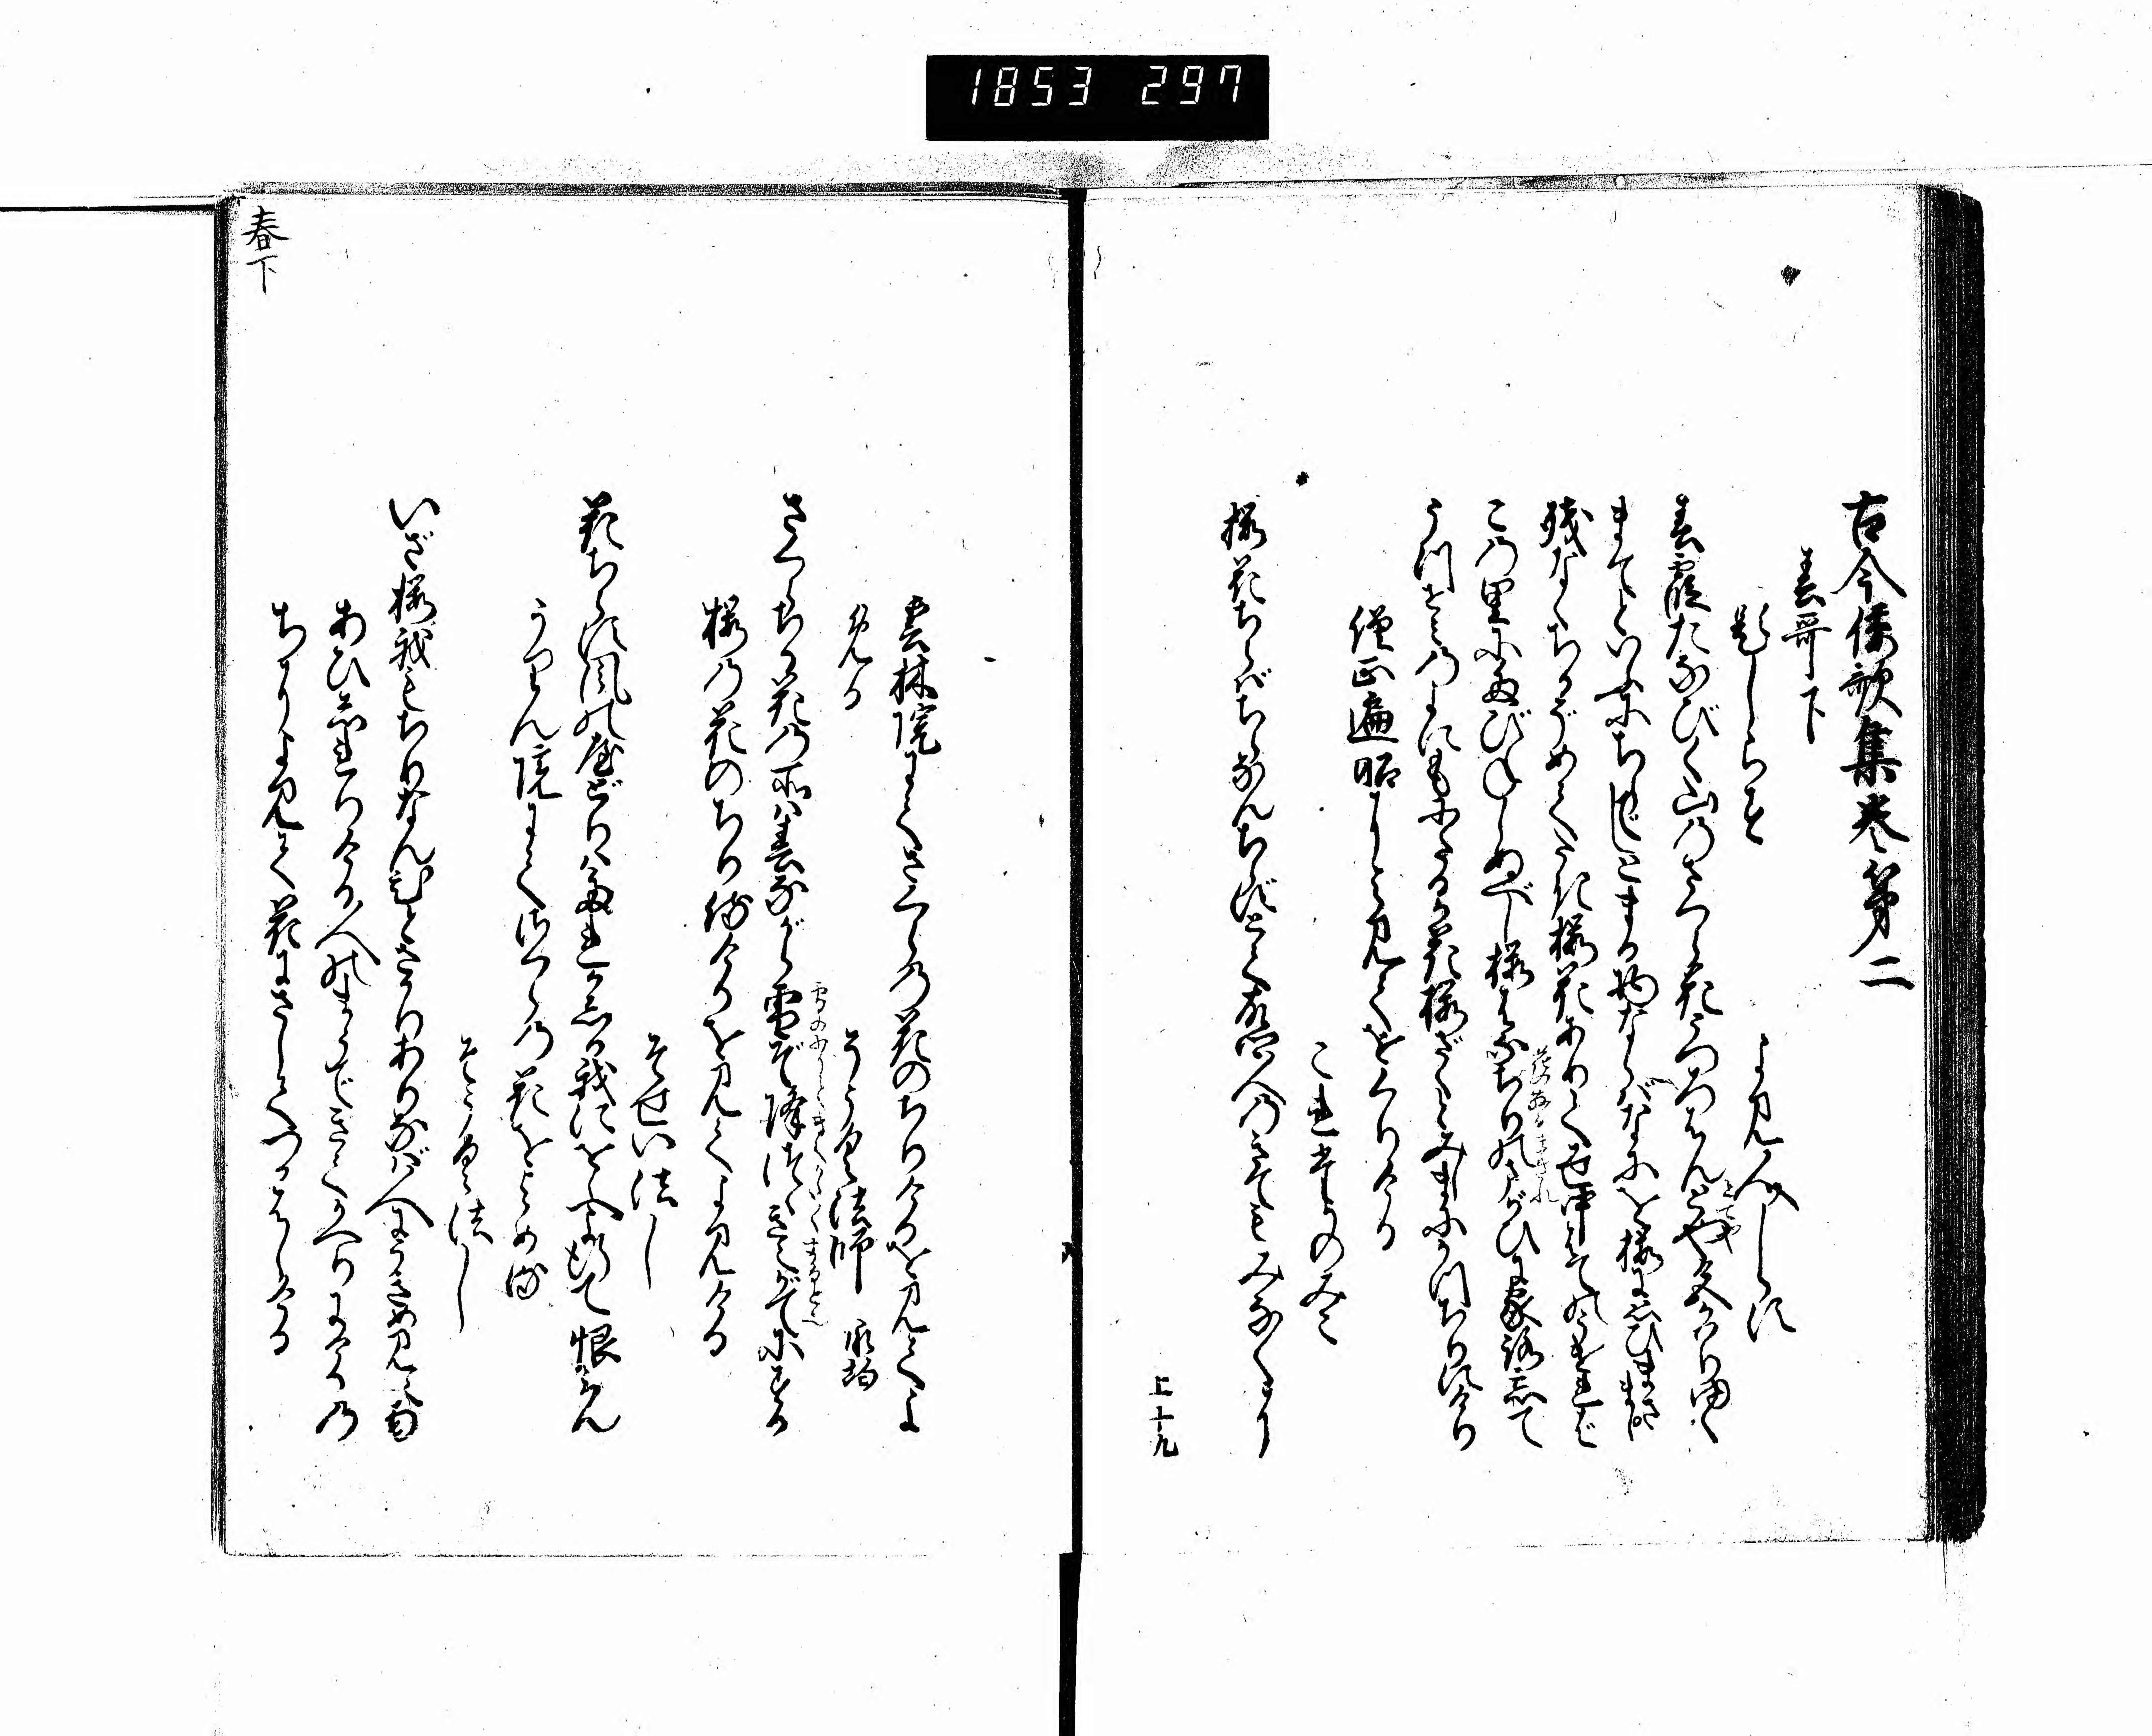 1853 297
古今倭歌集巻第二
春哥下
題しらす
よみ人しらす
春霞たなびく山のさくら花うつろはんとや色かはりゆく
まてといふにちらでしとまる物ならばなにを桜に思ひまさまし
残なくちるぞめでたき桜花ありて世中はての うければ
この里にたびねしぬべし桜花ちりのまがひに家路忘て
うつせみのよにもにたるか花桜さくとみしまにかつちりにけり
僧正遍昭によみてをくりける
これたかのみこ
桜花ちらばちらなんちらずとて故郷人のきてもみなくに
上十九
雲林院にてさくらの花のちりけるを見てよ
める
そうく法師 承均
さくらちる花の所は春ながら雪ぞ降つゝきえがてにする
桜の花のちり侍けるを見てよみける
そせい法し
花ちらす風のやどりは誰かしる我にをしへよ行て恨みん
うりん院にてさくらの花をよめる
そうく法し
いざ桜我もちりなんひとさかりありなば人にうきめ見えなん
あひしれりける人のまうできてかへりにけるの
ちによみて花にさしてつかはしける
春下